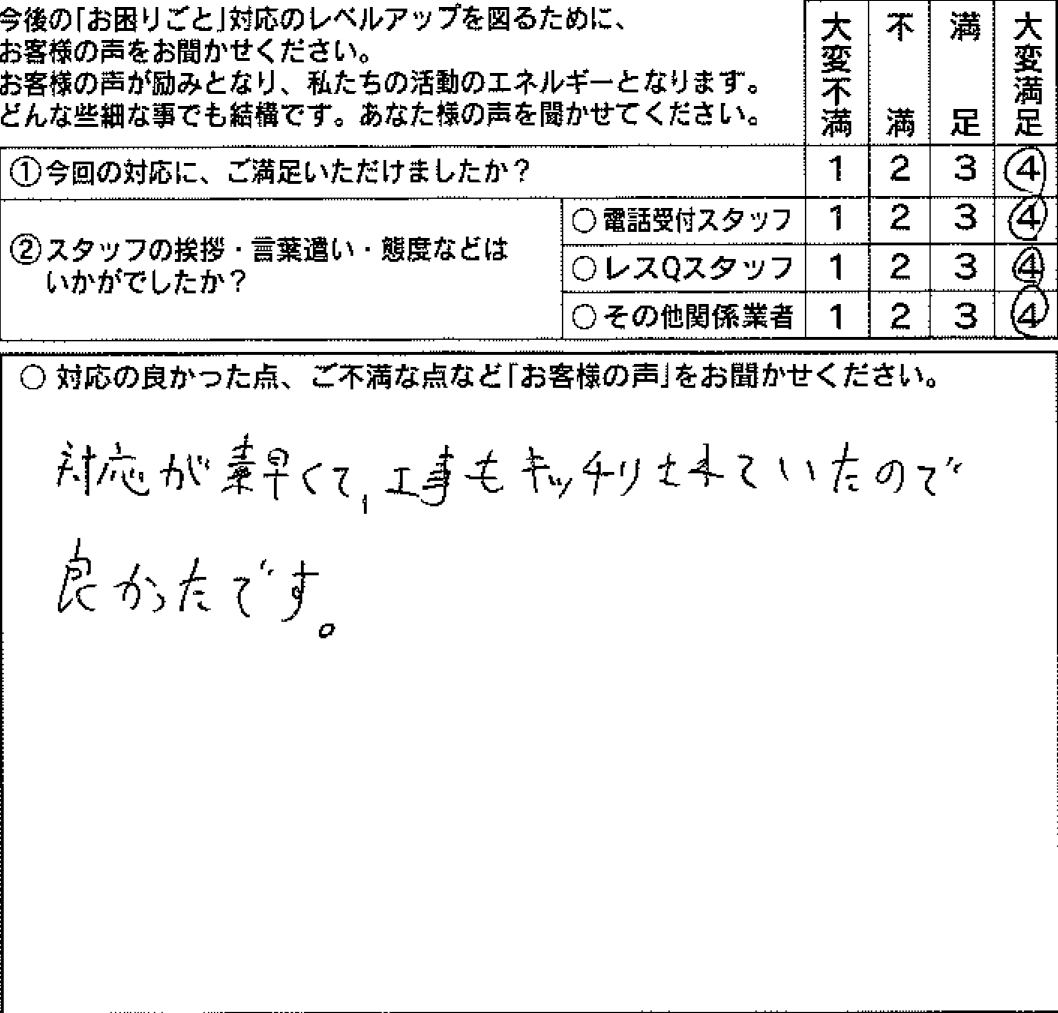 今後の｢お困りごと｣対応のレベルアップを図るために、
お客様の声をお聞かせください。
お客様の声が励みとなり、私たちの活動のエネルギーとなります。
どんな些細な事でも結構です。あなた様の声を聞かせてください。
大変不満 不満 満足 大変満足
①今回の対応に、ご満足いただけましたか？ 1 2 3 4
②スタッフの挨拶・言葉遣い・態度などは
いかがでしたか？
○電話受付スタッフ 1 2 3 4
○レスQスタッフ 1 2 3 4
○その他関係業者 1 2 3 4
○ 対応の良かった点、ご不満な点など｢お客様の声｣をお聞かせください。
対応が素早くて、工事もキッチリされていたので
良かったです。